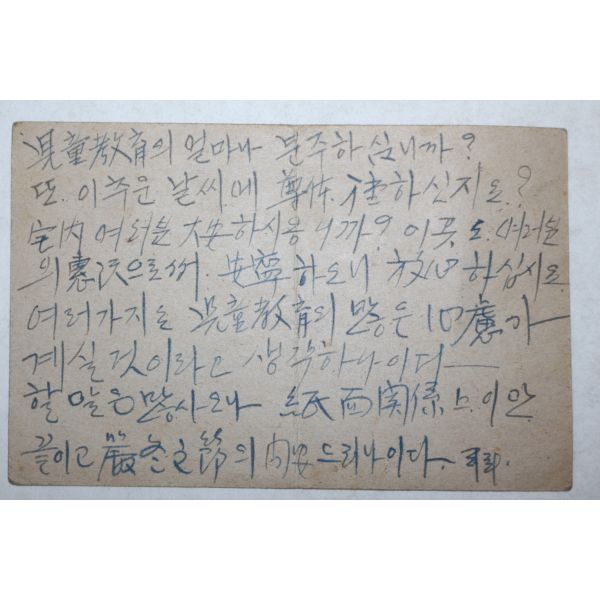 児童教育의 얼마나 분주하심니까?
또. 이추운 날씨.에 尊体 健하신지요.?
宅内 여러분 大安하시옵니까? 이곳도. 여러분
의 惠沢으로써. 安寧하오니 放心하십시요.
여러가지로 児童教育의 많은 心慮가
계실것이라고 생각하나이다——
할말은 많사오나 紙面関係느.이만
끝이고 嚴冬之節의 问安드리나이다.